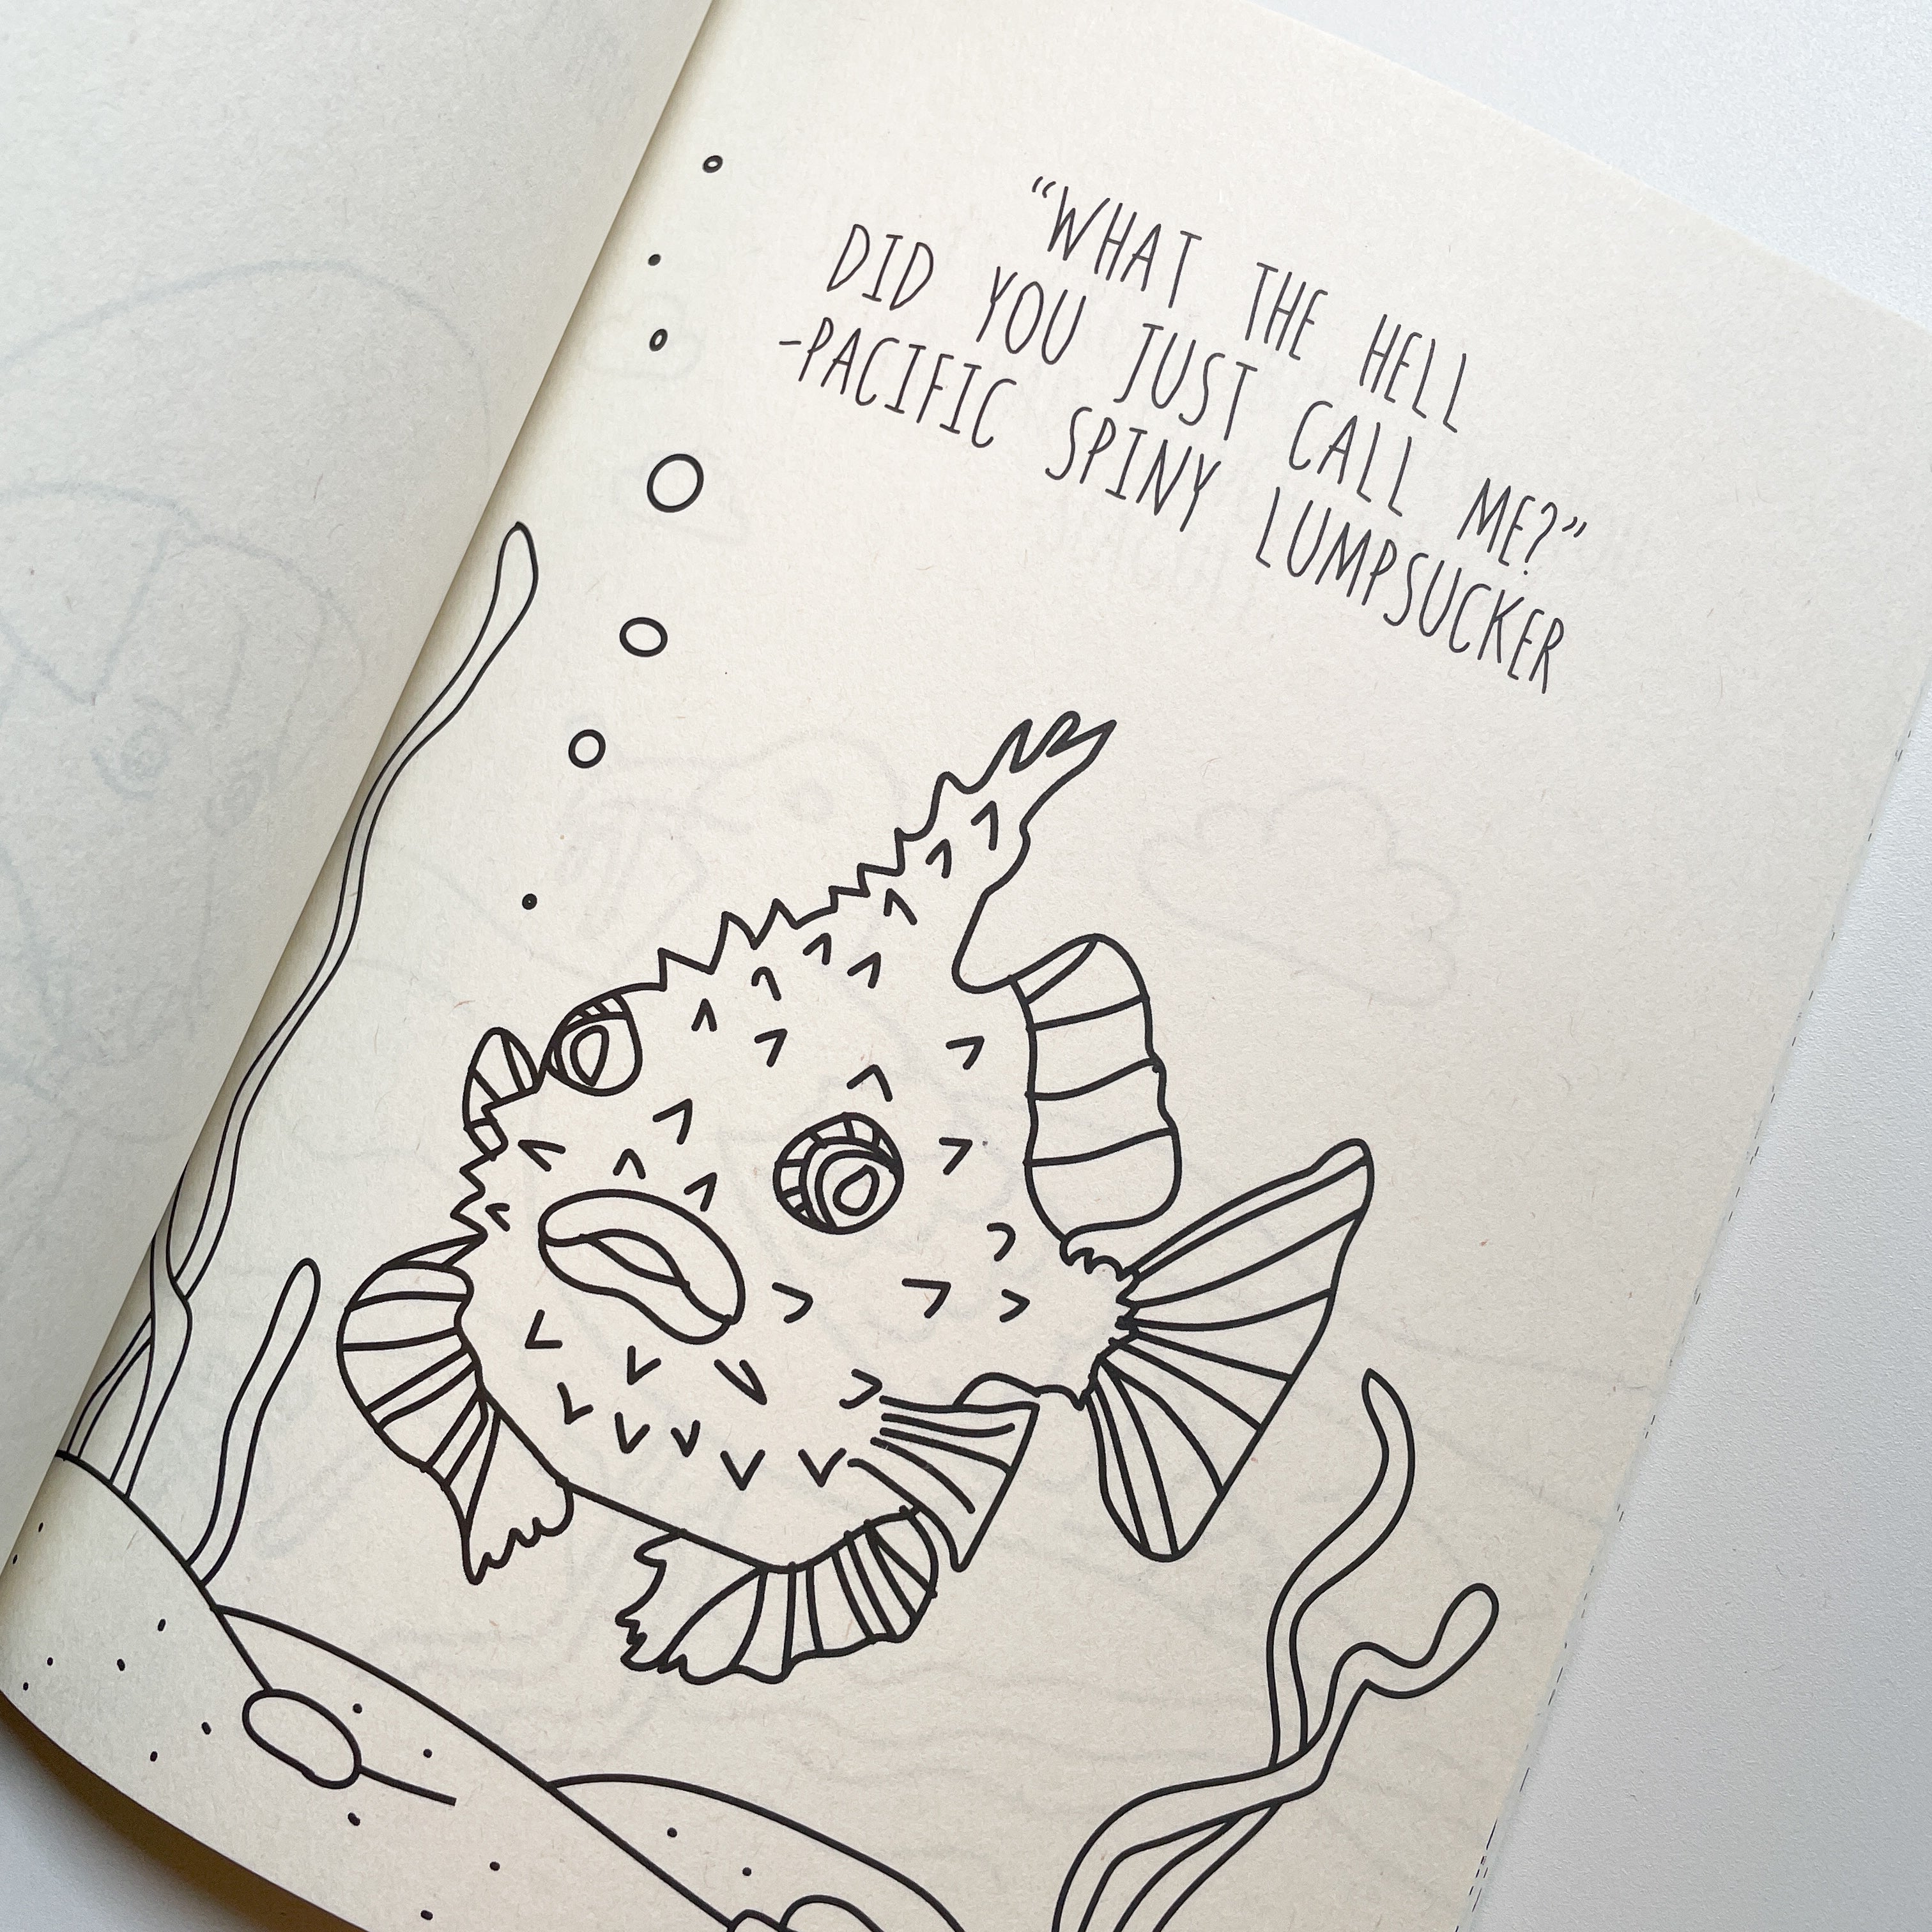 “WHAT THE HELL
DID YOU JUST CALL ME?”
-PACIFIC SPINY LUMPSUCKER